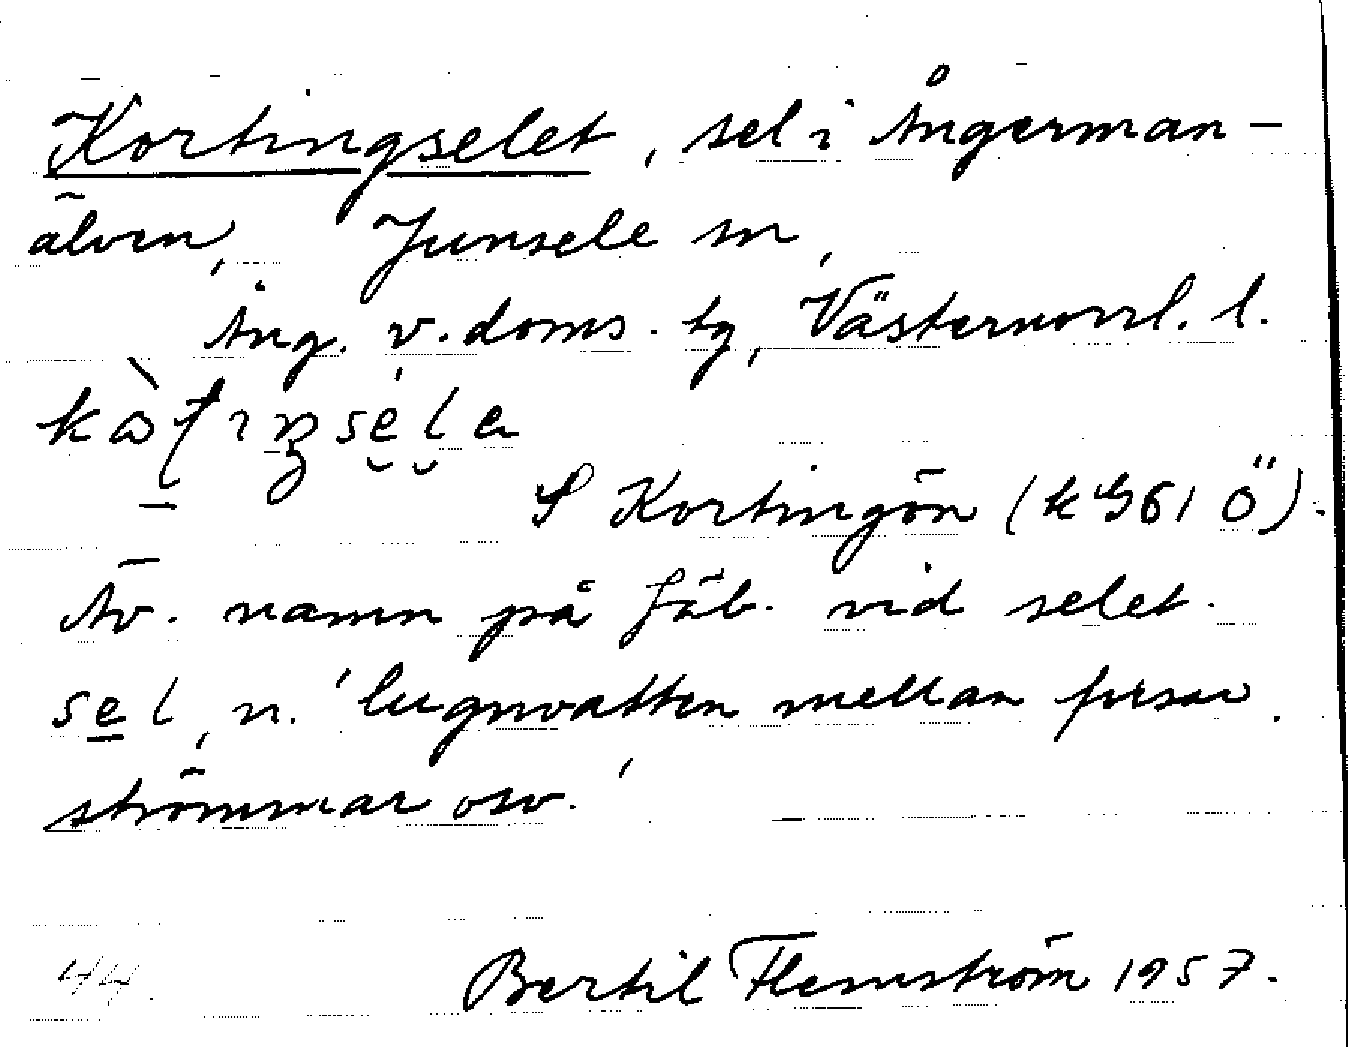 Kortingselet, sel i Ångerman-
älven, Junsele sn,
Ång. v. doms. tg, Västernorrl. l.
S Kortingön (k G61 Ö).
Äv. namn på fäb. vid selet.
sel, n. 'lugnvatten mellan forsar,
strömmar osv.'
44. Bertil Flemström 1957.